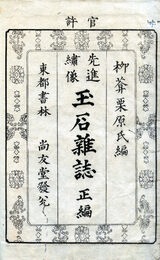 官許
柳葊栗原氏編
先進
繡像
玉石雜誌 正編
東都書林 尚友堂發兌